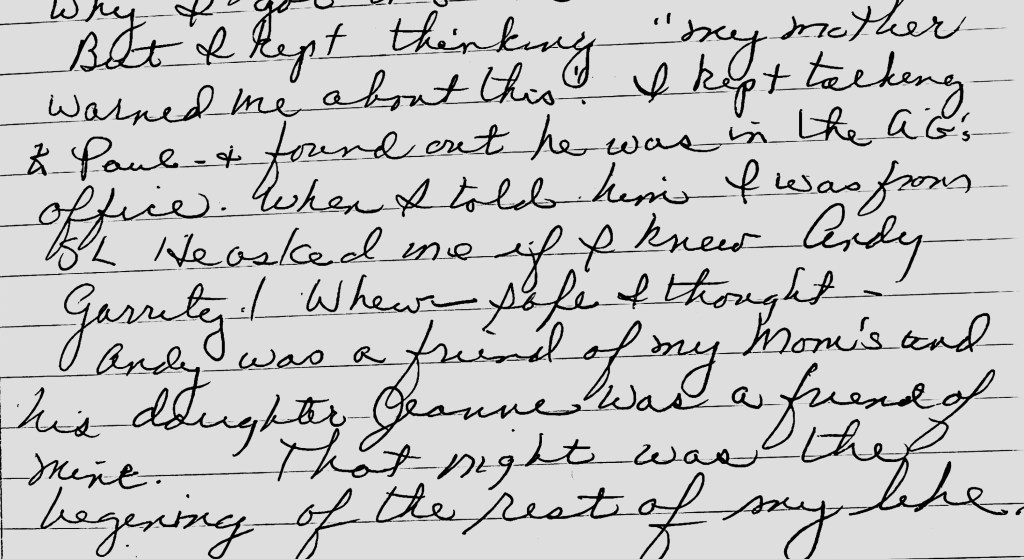 Why I go
But I kept thinking "my mother
warned me about this". I kept talking
to Paul - + found out he was in the AG's
office. When I told him I was from
SL He asked me if I knew Andy
Garrity! Whew - safe I thought -
Andy was a friend of my Mom's and
his daughter Jeanne was a friend of
mine. That night was the
begening of the rest of my life.